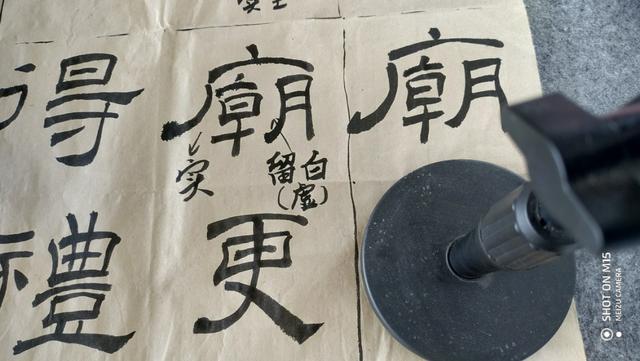 廟
廟更
实
留白
(虚)
得禮
SHOT ON M15
MEIZU CAMERA